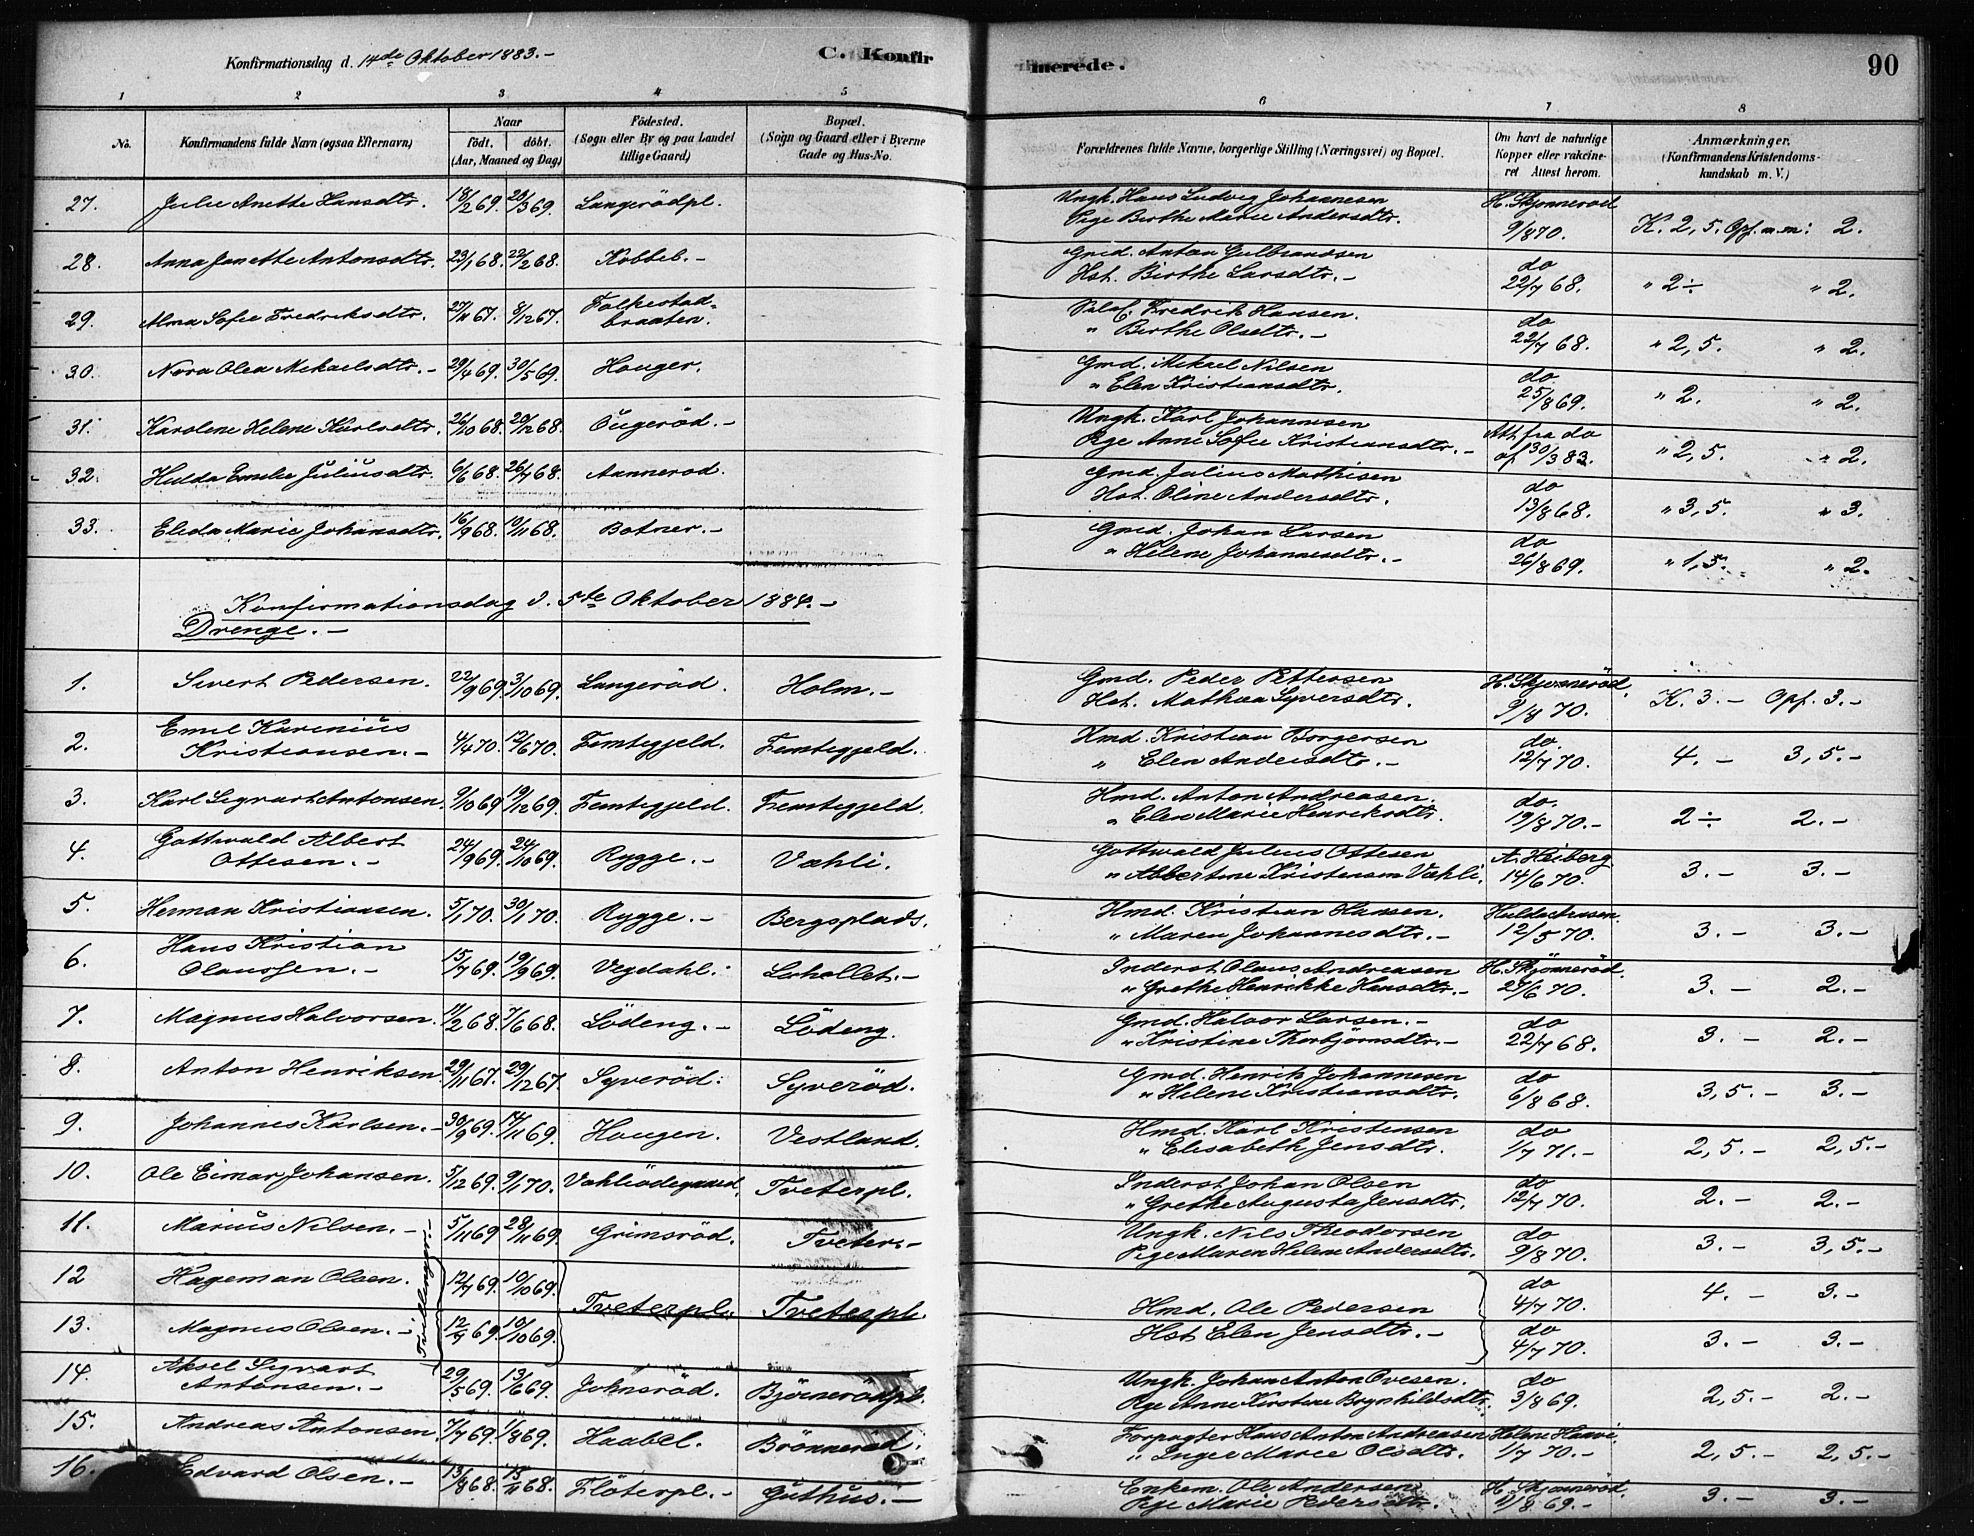 Konfirmationsdag d. 14de Oktober 1883.- C. Konfirmerede. 90
1 2 3 4 5 6 7 8
No. Konfirmandens fulde Navn (ogsaa Efternavn) Naar födt. döbt. (Aar, Maaned og Dag) Födested. (Sogn eller By og paa Landet tillige Gaard) Bopæl. (Sogn og Gaard eller i Byerne Gade og Hus-No. Forældrenes fulde Navne, borgerlige Stilling (Næringsvei) og Bopæl. Om havt de naturlige Kopper eller vakcineret Attest herom. Anmærkninger. (Konfirmandens Kristendomskundskab m. V.)
27. Julie Anette Hansdtr. 18/2 69. 29/3 69. Langerödpl. Ungk. Hans Ludvig Johannesen H. Skjønneröd
Pige Birthe Marie Andersdtr. 9/8 70. K. 2,5. Opf. m.m: 2.
28. Anna Janette Antonsdtr. 23/1 68. 29/2 68. Kobbeb.- Gmd. Anton Gulbrandsen do
Hst. Birthe Larsdtr.- 22/7 68. " 2÷ " 2.
29. Alma Sofie Fredriksdtr. 27/11 67. 8/12 67. Falkestad- Selvf. Fredrik Hansen. do
braaten. " Birthe Olsdtr.- 22/7 68. " 2,5. " 2.
30. Nora Olea Mikaelsdtr.- 29/4 69. 30/5 69. Houger. Gmd. Mikael Nilsen do
" Elen Kristiansdtr. 25/8 69. " 2. " 2.
31. Karolene Helene Karlsdtr. 26/10 68. 29/12 68. Ougeröd.- Ungk. Karl Johannesen Att. fra do
Pige Anne Sofie Kristiansdtr.- af 30/3 83. " 2,5. " 2.
32. Hulda Emelie Juliusdtr. 6/6 68. 26/7 68. Aannerod. Gmd. Julius Mathisen do
Hst. Oline Andersdtr. 13/8 68. " 3,5. " 3.
33. Elida Marie Johansdtr. 16/9 68. 19/11 68. Botner.- Gmd. Johan Larsen do
" Helene Johannesdtr.- 26/8 69. " 1,5. " 2.
Konfirmationsdag d. 5te Oktober 1884.-
Drenge.-
1. Sivert Pedersen. 22/9 69. 3/10 69. Langeröd. Holm.- Gmd. Peder Pettersen H. Skjønneröd.
Hst. Mathea Syversdtr. 9/8 70. K. 3.- Opf. 3.-
2. Emil Karenius Hmd. Kristian Borgersen do.
Kristiansen.- 4/4 70. 12/6 70. Femtegjeld. Femtegjeld. " Elen Andersdtr.- 12/7 70. 4.- 3,5.-
3. Karl Sigvart Antonsen. 9/10 69. 19/12 69. Femtegjeld. Femtegjeld. Hmd. Anton Andreasen. do.
" Elen Marie Henriksdtr. 19/8 70.- 2÷ 2.-
4. Gottwald Albert Gottwald Julius Ottesen A. Heiberg
Ottesen.- 24/9 69. 24/10 69. Rygge.- Vahli. " Albertine Kristensen Vahli. 14/6 70. 3.- 3.-
5. Herman Kristiansen. 5/1 70. 30/1 70. Rygge.- Bergsplads. Hmd. Kristian Hansen.
" Maren Johannesdtr.- 12/5 70. 3.- 3.-
6. Hans Kristian Inderst Olaus Andreasen H. Skjønneröd.
Olaussen.- 15/7 69. 19/9 69. Vegdahl. Lahellet.- " Grethe Henrikke Hansdtr.- 27/6 70. 3.- 2.-
7. Magnus Halvorsen. 11/2 68. 7/6 68. Lödeng.- Lödeng. Gmd. Halvor Larsen.- do
" Kristine Thorbjørnsdtr.- 22/7 68. 3.- 2.-
8. Anton Henriksen 29/11 67. 29/12 67. Syveröd. Syveröd. Gmd. Henrik Johannesen do
" Helene Kristiansdtr. 6/8 68. 3,5.- 3.-
9. Johannes Karlsen.- 30/9 69. 14/11 69. Hougen. Vestland. Hmd. Karl Kristensen do
" Elisabeth Jensdtr. 1/7 71.- 2,5.- 2,5.-
10. Ole Eimar Johansen. 5/12 69. 9/1 70. Vahliödegaard. Tveterpl. Inderst Johan Olsen do
" Grethe Augusta Jensdtr. 12/7 70. 2.- 2.-
11. Marius Nilsen.- 5/11 69 28/11 69. Grimsröd. Tveter.- Ungk. Nils Theodorsen do
Pige Maren Helene Andersdtr. 9/8 70. 3.- 3,5.-
Tvillinger.-
12 Hageman Olsen. 12/7 69. 10/10 69. Tveterpl. Tveterpl. Hmd. Ole Pedersen do 4/7 70. 4.- 3.-
13. Magnus Olsen.- 12/7 69. 10/10 69. Hst Elen Jensdtr.- do 4/7 70. 3.- 3.-
14. Aksel Sigvart Ungk. Johan Anton Ovesen. do
Antonsen.- 29/5 69. 13/6 69. Johnsröd. Bjørnerödpl. Pige Anne Kirstine Brynhildsdtr. 3/8 69. 2,5.- 2.-
15. Andreas Antonsen. 7/7 69. 1/8 69. Haabel. Brönneröd. Forpagter Hans Anton Andreasen Helene Haavi.
" Inger Marie Olsdtr. 1/7 70.- 2,5.- 2,5.-
16. Edvard Olsen.- 13/8 68. 15/11 68. Flöterpl.- Guthus.- Enkem. Ole Andersen H. Skjønneröd.
Pige Marie Pedersdtr. 11/8 69.- 3.- 3.-